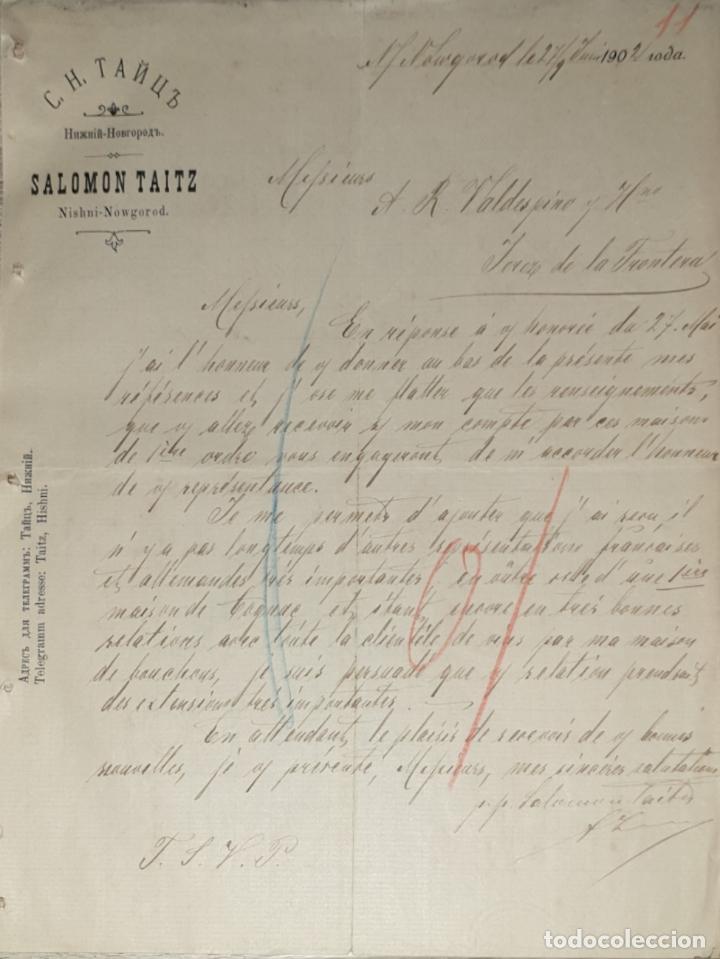 11
N Nowgorod le 27/9 Juin 1902 года.
С. Н. ТАЙЦЪ
Нижній-Новгородъ.
SALOMON TAITZ
Nishni-Nowgorod.
Messieurs
A. R. Valdespino y Hno
Jerez de la Frontera
Messieurs,
En réponse à v/ honorée du 27. Mai
j'ai l'honneur de v/ donner au bas de la présente mes
références et j'ose me flatter que les renseignements,
que v/ allez recevoir s/ mon compte par ces maisons
de 1ière ordre vous engageront de m'accorder l'honneur
de v/ représentance.
Je me permets d'ajouter que j'ai reçu il
n'y a pas longtemps d'autres représentations françaises
et allemandes très importantes, en outre d'une 1ière
maison de Cognac et étant encore en très bonnes
relations avec toute la clientèle de vins par ma maison
de bouchons, je suis persuadé que n/ relation prendrait
des extensions très importantes.
En attendant le plaisir de recevoir de v/ bonnes
nouvelles, je v/ présente, Messieurs, mes sincères salutations
p.p. Salomon Taitz
T. S. V. P.
Адресъ для телеграммъ: Тайцъ, Нижній.
Telegramm adresse: Taitz, Hishni.
todocoleccion